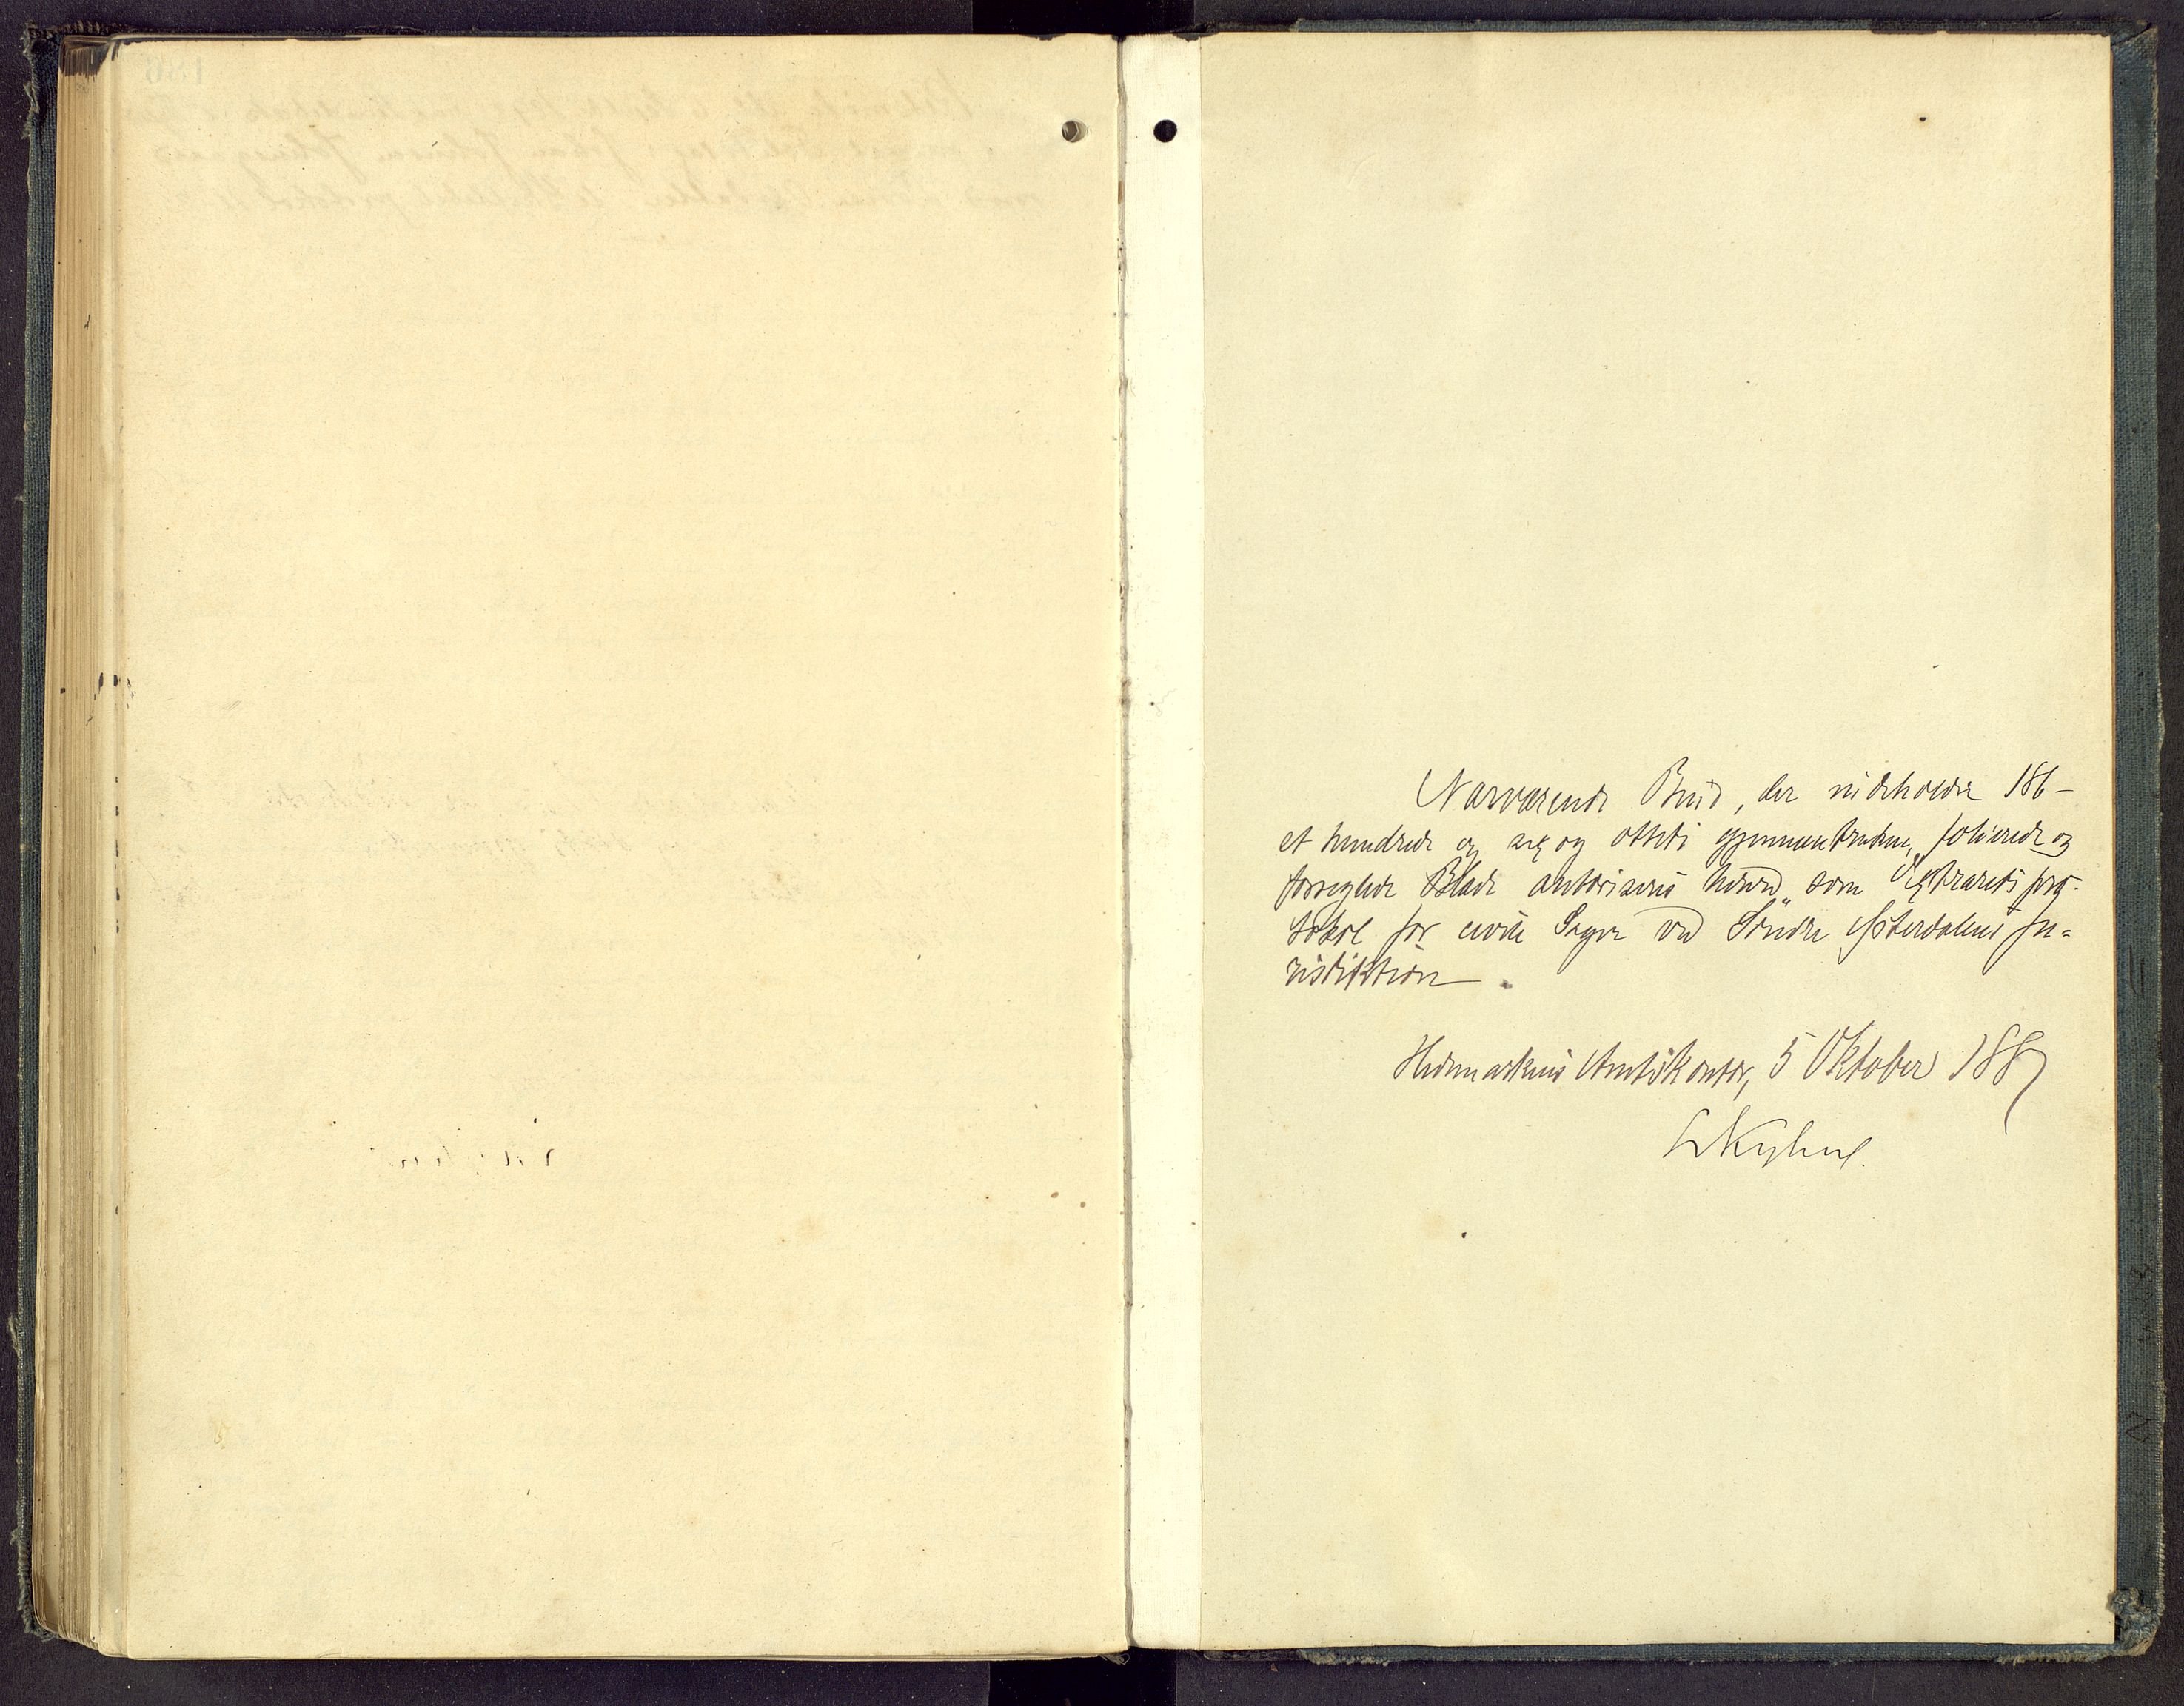 Nærværende Bind, der indeholder 186 –
et hundrede og sex og otteti gjennemtrukne, folierede og
forseglede Blade autoriseres herved som Extraretspro-
tokol for civile Sager ved Søndre Østerdalens Ju=
risdiktion.
Hedemarkens Amtskontor, 5 Oktober 1887